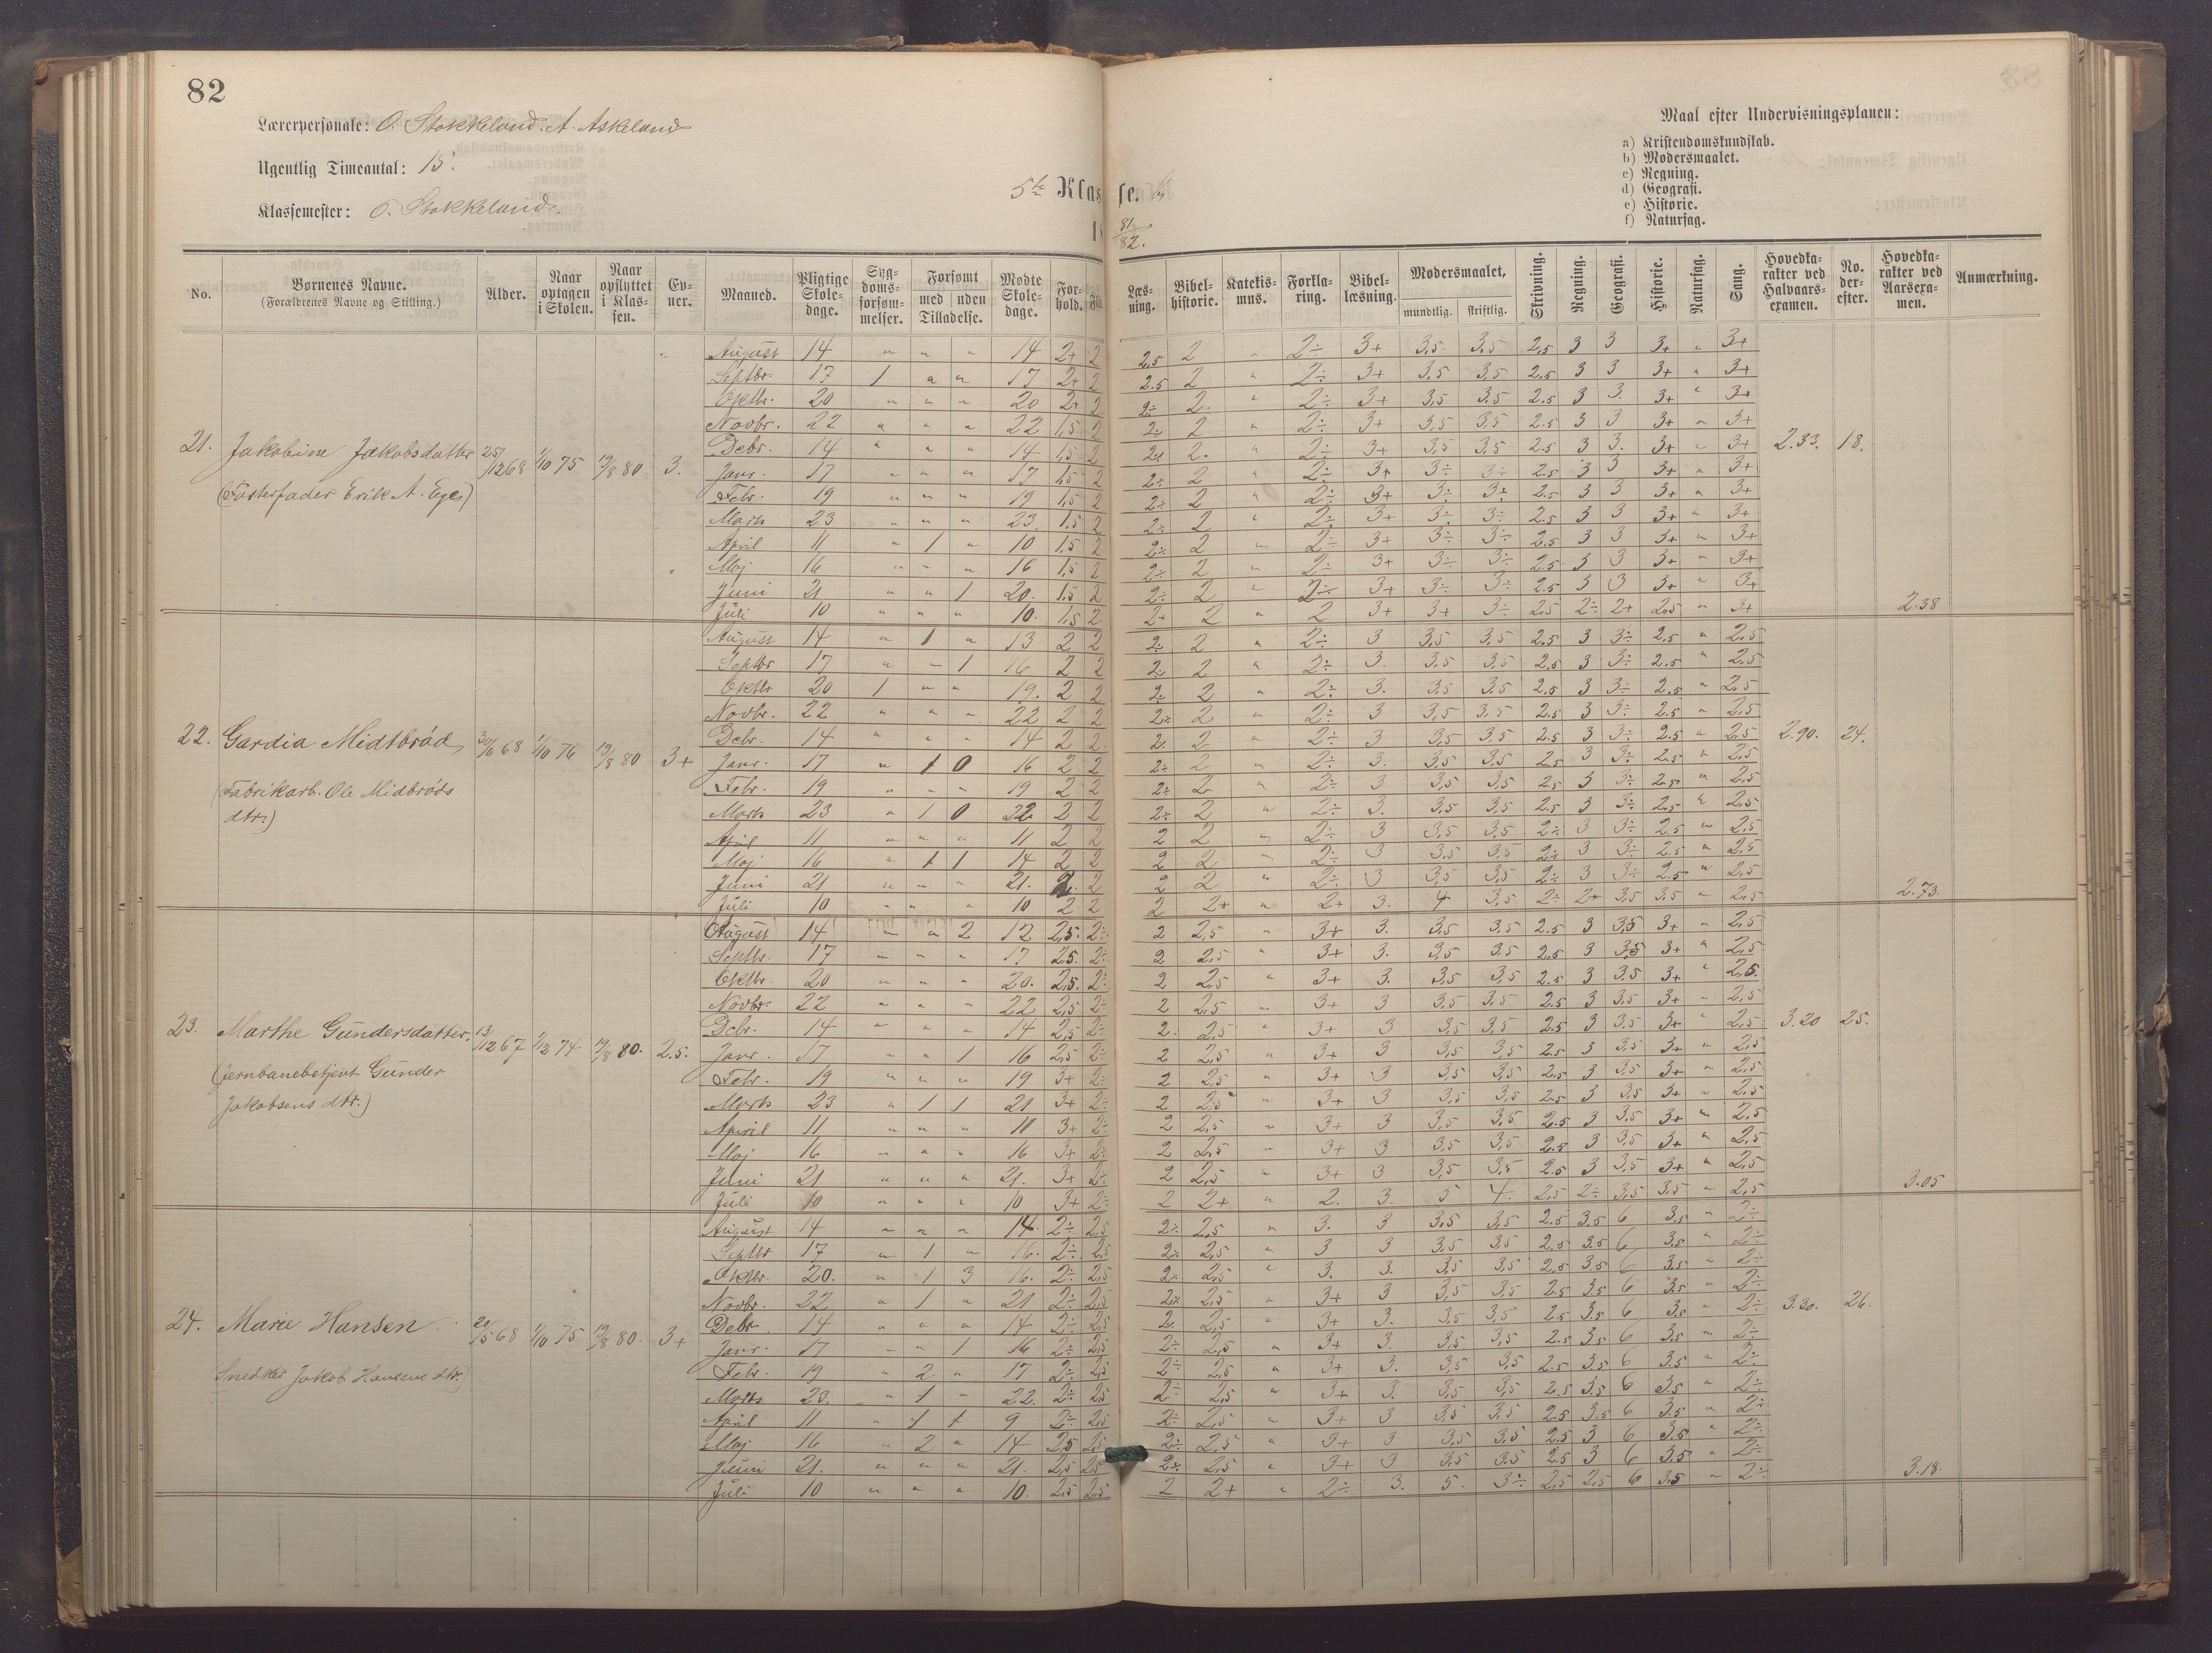 82
Lærerpersonale: O. Stokkeland. A. Askeland
Ugentlig Timeantal: 15.
Klassemester: O. Stokkeland.
5te Klasse. b
18 81/82.
Maal efter Undervisningsplanen:
a) Kristendomskundskab.
b) Modersmaalet.
c) Regning.
d) Geografi.
e) Historie.
f) Naturfag.
No. | Børnenes Navne. (Forældrenes Navne og Stilling.) | Alder. | Naar optagen i Skolen. | Naar opflyttet i Klassen. | Evner. | Maaned. | Pligtige Skoledage. | Sygdomsforsømmelser. | Forsømt med / uden Tilladelse. | Mødte Skoledage. | Forhold. | Læsning. | Bibelhistorie. | Katekismus. | Forklaring. | Bibellæsning. | Modersmaalet, mundtlig. / skriftlig. | Skrivning. | Regning. | Geografi. | Historie. | Naturfag. | Sang. | Hovedkarakter ved Halvaarsexamen. | No. derefter. | Hovedkarakter ved Aarsexamen. | Anmærkning.
21. Jakobine Jakobsdatter 25/12 68 1/10 75 19/8 80 3. 2.33. 18. 2.38
(Fosterfader Erik A. Ege)
August 14 " " " 14 2+ 2 2,5 2 " 2÷ 3+ 3,5 3,5 2,5 3 3 3+ " 3+
Septbr. 17 1 " " 17 2+ 2 2.5 2 " 2÷ 3+ 3,5 3,5 2.5 3 3 3+ " 3+
Oktbr. 20 " " " 20 2+ 2 2÷ 2. " 2÷ 3+ 3,5 3.5 2.5 3 3. 3+ " 3+
Novbr. 22 " " " 22 1,5 2 2÷ 2 " 2÷ 3+ 3,5 3,5 2.5 3 3 3+ " 3+
Debr. 14 " " " 14 1,5 2 2÷ 2. " 2÷ 3+ 3,5 3,5 2.5 3 3. 3+ " 3+
Janr. 17 " " " 17 1,5 2 2÷ 2 " 2÷ 3+ 3÷ 3÷ 2.5 3 3 3+ " 3+
Febr. 19 " " " 19 1,5 2 2÷ 2 " 2÷ 3+ 3÷ 3÷ 2.5 3 3 3+ " 3+
Marts 23 " " " 23 1,5 2 2÷ 2 " 2÷ 3+ 3÷ 3÷ 2.5 3 3 3+ " 3+
April 11 " 1 " 10 1,5 2 2÷ 2 " 2÷ 3+ 3÷ 3÷ 2.5 3 3 3+ " 3+
Maj 16 " " " 16 1,5 2 2÷ 2 " 2÷ 3+ 3÷ 3÷ 2.5 3 3 3+ " 3+
Juni 21 " " 1 20. 1,5 2 2÷ 2 " 2÷ 3+ 3÷ 3÷ 2.5 3 3 3+ " 3+
Juli 10 " " " 10. 1,5 2. 2+ 2 " 2 3+ 3+ 3÷ 2,5 2÷ 2+ 2,5 " 3+
22. Gardia Midtbrød 30/6 68 1/10 76 19/8 80 3+ 2.90. 24. 2.73.
(Fabrikarb. Ole Midbrøds
dtr.)
August 14 " 1 " 13 2 2 2÷ 2 " 2÷ 3 3,5 3,5 2.5 3 3÷ 2.5 " 2,5
Septbr 17 " " 1 16 2 2 2÷ 2 " 2÷ 3. 3,5 3,5 2.5 3 3÷ 2.5 " 2,5
Oktbr 20 1 " " 19. 2 2 2÷ 2 " 2÷ 3. 3,5 3.5 2.5 3 3÷ 2.5 " 2,5
Novbr. 22 " " " 22 2 2 2÷ 2 " 2÷ 3 3,5 3,5 2.5 3 3÷ 2.5 " 2,5
Debr. 14 " " " 14 2 2. 2÷ 2 " 2÷ 3 3,5 3,5 2.5 3 3÷ 2.5 " 2,5
Janr. 17 " 1 0 16 2 2 2÷ 2 " 2÷ 3. 3,5 3,5 2.5 3 3÷ 2.5 " 2,5
Febr. 19 " " " 19 2 2 2÷ 2 " 2÷ 3 3,5 3,5 2.5 3 3÷ 2.5 " 2,5
Marts 23 " 1 0 22 2 2 2÷ 2 " 2÷ 3. 3,5 3,5 2.5 3 3÷ 2,5 " 2,5
April 11 " " " 11 2 2 2 2 " 2÷ 3 3,5 3,5 2÷ 3 3÷ 2.5 " 2,5
Maj 16 " 1 1 14 2 2 2 2 " 2÷ 3 3,5 3,5 2÷ 3 3÷ 2.5 " 2,5
Juni 21 " " " 21. 2. 2 2 2 " 2÷ 3 3,5 3,5 2÷ 3 3÷ 2.5 " 2,5
Juli 10 " " " 10 2 2 2 2+ " 2+ 3. 4 3,5 2÷ 2+ 3,5 3.5 " 2,5
23. Marthe Gundersdatter. 13/12 67 1/12 74 19/8 80. 2.5. 3.20 25. 3.05
(Jernbanebetjent Gunder
Jakobsens dtr.)
August 14 " " 2 12 2,5. 2÷ 2 2,5 " 3+ 3. 3,5 3,5 2.5 3 3,5 3+ " 2,5
Septbr. 17 " " " 17 2,5. 2÷ 2 2,5 " 3+ 3. 3,5 3.5 2.5 3 3,5 3+ " 2,5
Oktbr. 20 " " " 20. 2,5. 2÷ 2 2,5 " 3+ 3. 3,5 3,5 2.5 3 3.5 3+ " 2,5.
Novbr. 22 " " " 22 2,5 2÷ 2 2,5 " 3+ 3 3,5 3,5 2.5 3 3,5 3+ " 2,5
Debr. 14 " " " 14 2,5 2÷ 2. 2,5 " 3+ 3 3,5 3,5 2.5 3 3,5 3+ " 2,5
Janr. 17 " " 1 16 2,5 2÷ 2 2,5 " 3+ 3 3,5 3,5 2.5 3 3,5 3+ " 2,5
Febr. 19 " " " 19 3+ 2÷ 2 2,5 " 3+ 3 3,5 3,5 2.5 3 3,5 3+ " 2,5
Marts 23 " 1 1 21 3+ 2÷ 2 2,5 " 3+ 3 3,5 3,5 2.5 3 3,5 3+ " 2,5
April 11 " " " 11 3+ 2÷ 2 2,5 " 3+ 3 3,5 3,5 2.5 3 3,5 3+ " 2,5
Maj 16 " " " 16 3+ 2÷ 2 2,5 " 3+ 3 3,5 3,5 2.5 3 3,5 3+ " 2,5
Juni 21 " " " 21. 3+ 2÷ 2 2,5 " 3+ 3 3,5 3,5 2.5 3 3,5 3+ " 2,5
Juli 10 " " " 10 3+ 2÷ 2 2+ " 2. 3. 5 4. 2,5 2÷ 3,5 3,5 " 2,5
24. Marie Hansen 20/5 68 1/10 75 19/8 80. 3+ 3.30. 26. 3.18.
Snedker Jakob Hansens dtr.
August 14 " " " 14. 2÷ 2,5 2÷ 2,5 " 3. 3 3,5 3,5 2.5 3.5 6 3.5 " 2÷
Septbr 17 " 1 " 16. 2÷ 2,5 2÷ 2,5 " 3 3 3,5 3,5 2.5 3.5 6 3.5 " 2÷
Oktbr. 20. " 1 3 16. 2÷ 2,5 2÷ 2,5 " 3. 3. 3,5 3,5 2,5 3.5 6 3.5 " 2÷
Novbr. 22 " 1 " 21 2÷ 2,5 2÷ 2,5 " 3+ 3 3,5 3,5 2.5 3.5 6 3.5 " 2÷
Debr 14 " " " 14 2÷ 2,5 2÷ 2,5 " 3+ 3. 3,5 3,5 2.5 3.5 6 3.5 " 2÷
Janr. 17 " " 1 16 2÷ 2,5 2÷ 2,5 " 3+ 3. 3,5 3,5 2.5 3.5 6 3.5 " 2÷
Febr. 19 " 2 " 17 2÷ 2,5 2÷ 2,5 " 3+ 3. 3,5 3,5 2.5 3.5 6 3.5 " 2÷
Marts 23. " 1 " 22. 2÷ 2,5 2÷ 2,5 " 3+ 3. 3,5 3,5 2.5 3.5 6 3.5 " 2÷
April 11 " 1 1 9 2÷ 2,5 2÷ 2,5 " 3+ 3 3,5 3,5 2.5 3.5 6 3.5 " 2÷
Maj 16 " 2 " 14 2,5 2,5 2÷ 2,5 " 3+ 3 3,5 3,5 2.5 3 6 3.5 " 2÷
Juni 21. " " " 21. 2,5 2,5 2÷ 2,5 " 3+ 3 3,5 3,5 2.5 3 6 3.5 " 2÷
Juli 10 " " " 10. 2,5 2,5 2 2+ " 2÷ 3. 5. 3÷ 2,5 2,5 6 3,5 " 2÷